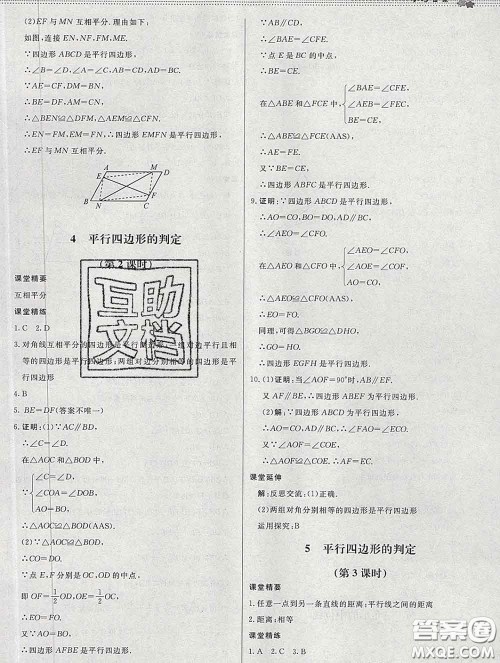 (2)EF 与 MN 互相平分. 理由如下:
如图,连接 EN、FN、FM、ME.
∵四边形 ABCD 是平行四边形,
∴∠B=∠D,AD=BC,AB=CD.
∵AE=CF,DM=BN,
∴BE=DF,AM=CN,
∴△BEN≌△DFM,△AEM≌△CFN,
∴EN=FM,EM=FN,∴四边形 EMFN 是平行四边形,
∴EF 与 MN 互相平分.
A M D
E F
B N C
4 平行四边形的判定
(第2课时)
课堂精要
互相平分
课堂精练
1.C 2.D
3.对角线互相平分的四边形是平行四边形;一组对边平行且相
等的四边形是平行四边形;两组对边分别相等的四边形是平
行四边形
4.B
5.BE=DF(答案不唯一)
6.证明:(1)∵AC∥BD,
∴∠C=∠D.
在△AOC 和△BOD 中,
∵
∠C=∠D,
∠COA=∠DOB,
AO=BO,
∴△AOC≌△BOD(AAS).
(2)∵△AOC≌△BOD,
∴CO=DO.
∵点 E、F 分别是 OC、OD 的中点,
即 OF=1/2 OD,OE=1/2 OC,
∴EO=FO,
又∵AO=BO,
∴四边形 AFBE 是平行四边形.
∴∠BAE=∠CFE.
∵点 E 是 BC 的中点,
∴BE=CE.
在△ABE 和△FCE 中,
∠BAE=∠CFE,
∠AEB=∠FEC,
BE=CE,
∴△ABE≌△FCE(AAS),
∴AE=FE.
又∵BE=CE,
∴四边形 ABFC 是平行四边形.
9.证明:∵四边形 ABCD 是平行四边形,
∴AO=CO,BO=DO,AB∥CD,
∴∠AEO=∠CFO.
在△AEO 和△CFO 中,
∠AEO=∠CFO,
∠AOE=∠COF,
AO=CO,
∴△AEO≌△CFO(AAS).
∴EO=FO.
同理,可得△BGO≌△DHO,
∴GO=HO.
∴四边形 EGFH 是平行四边形.
10.(1)证明:当∠AOF=90°时,AB∥EF.
又 AF∥BE,∴四边形 ABEF 为平行四边形.
(2)解:∵四边形 ABCD 为平行四边形,
∴AO=CO,AF∥EC,∴∠FAO=∠ECO.
又∵∠AOF=∠COE,
∴△AOF≌△COE.
∴AF=EC.
课堂延伸
解:反思交流:(1)正确.
(2)两组对角分别相等的四边形是平行四边形
运用探究:B
5 平行四边形的判定
(第3课时)
课堂精要
1.任意一点到另一条直线的距离;平行线之间的距离
2.距离;相等
课堂精练
1.A 2.C 3.B
互助文档
答案圈
MXQE.COM